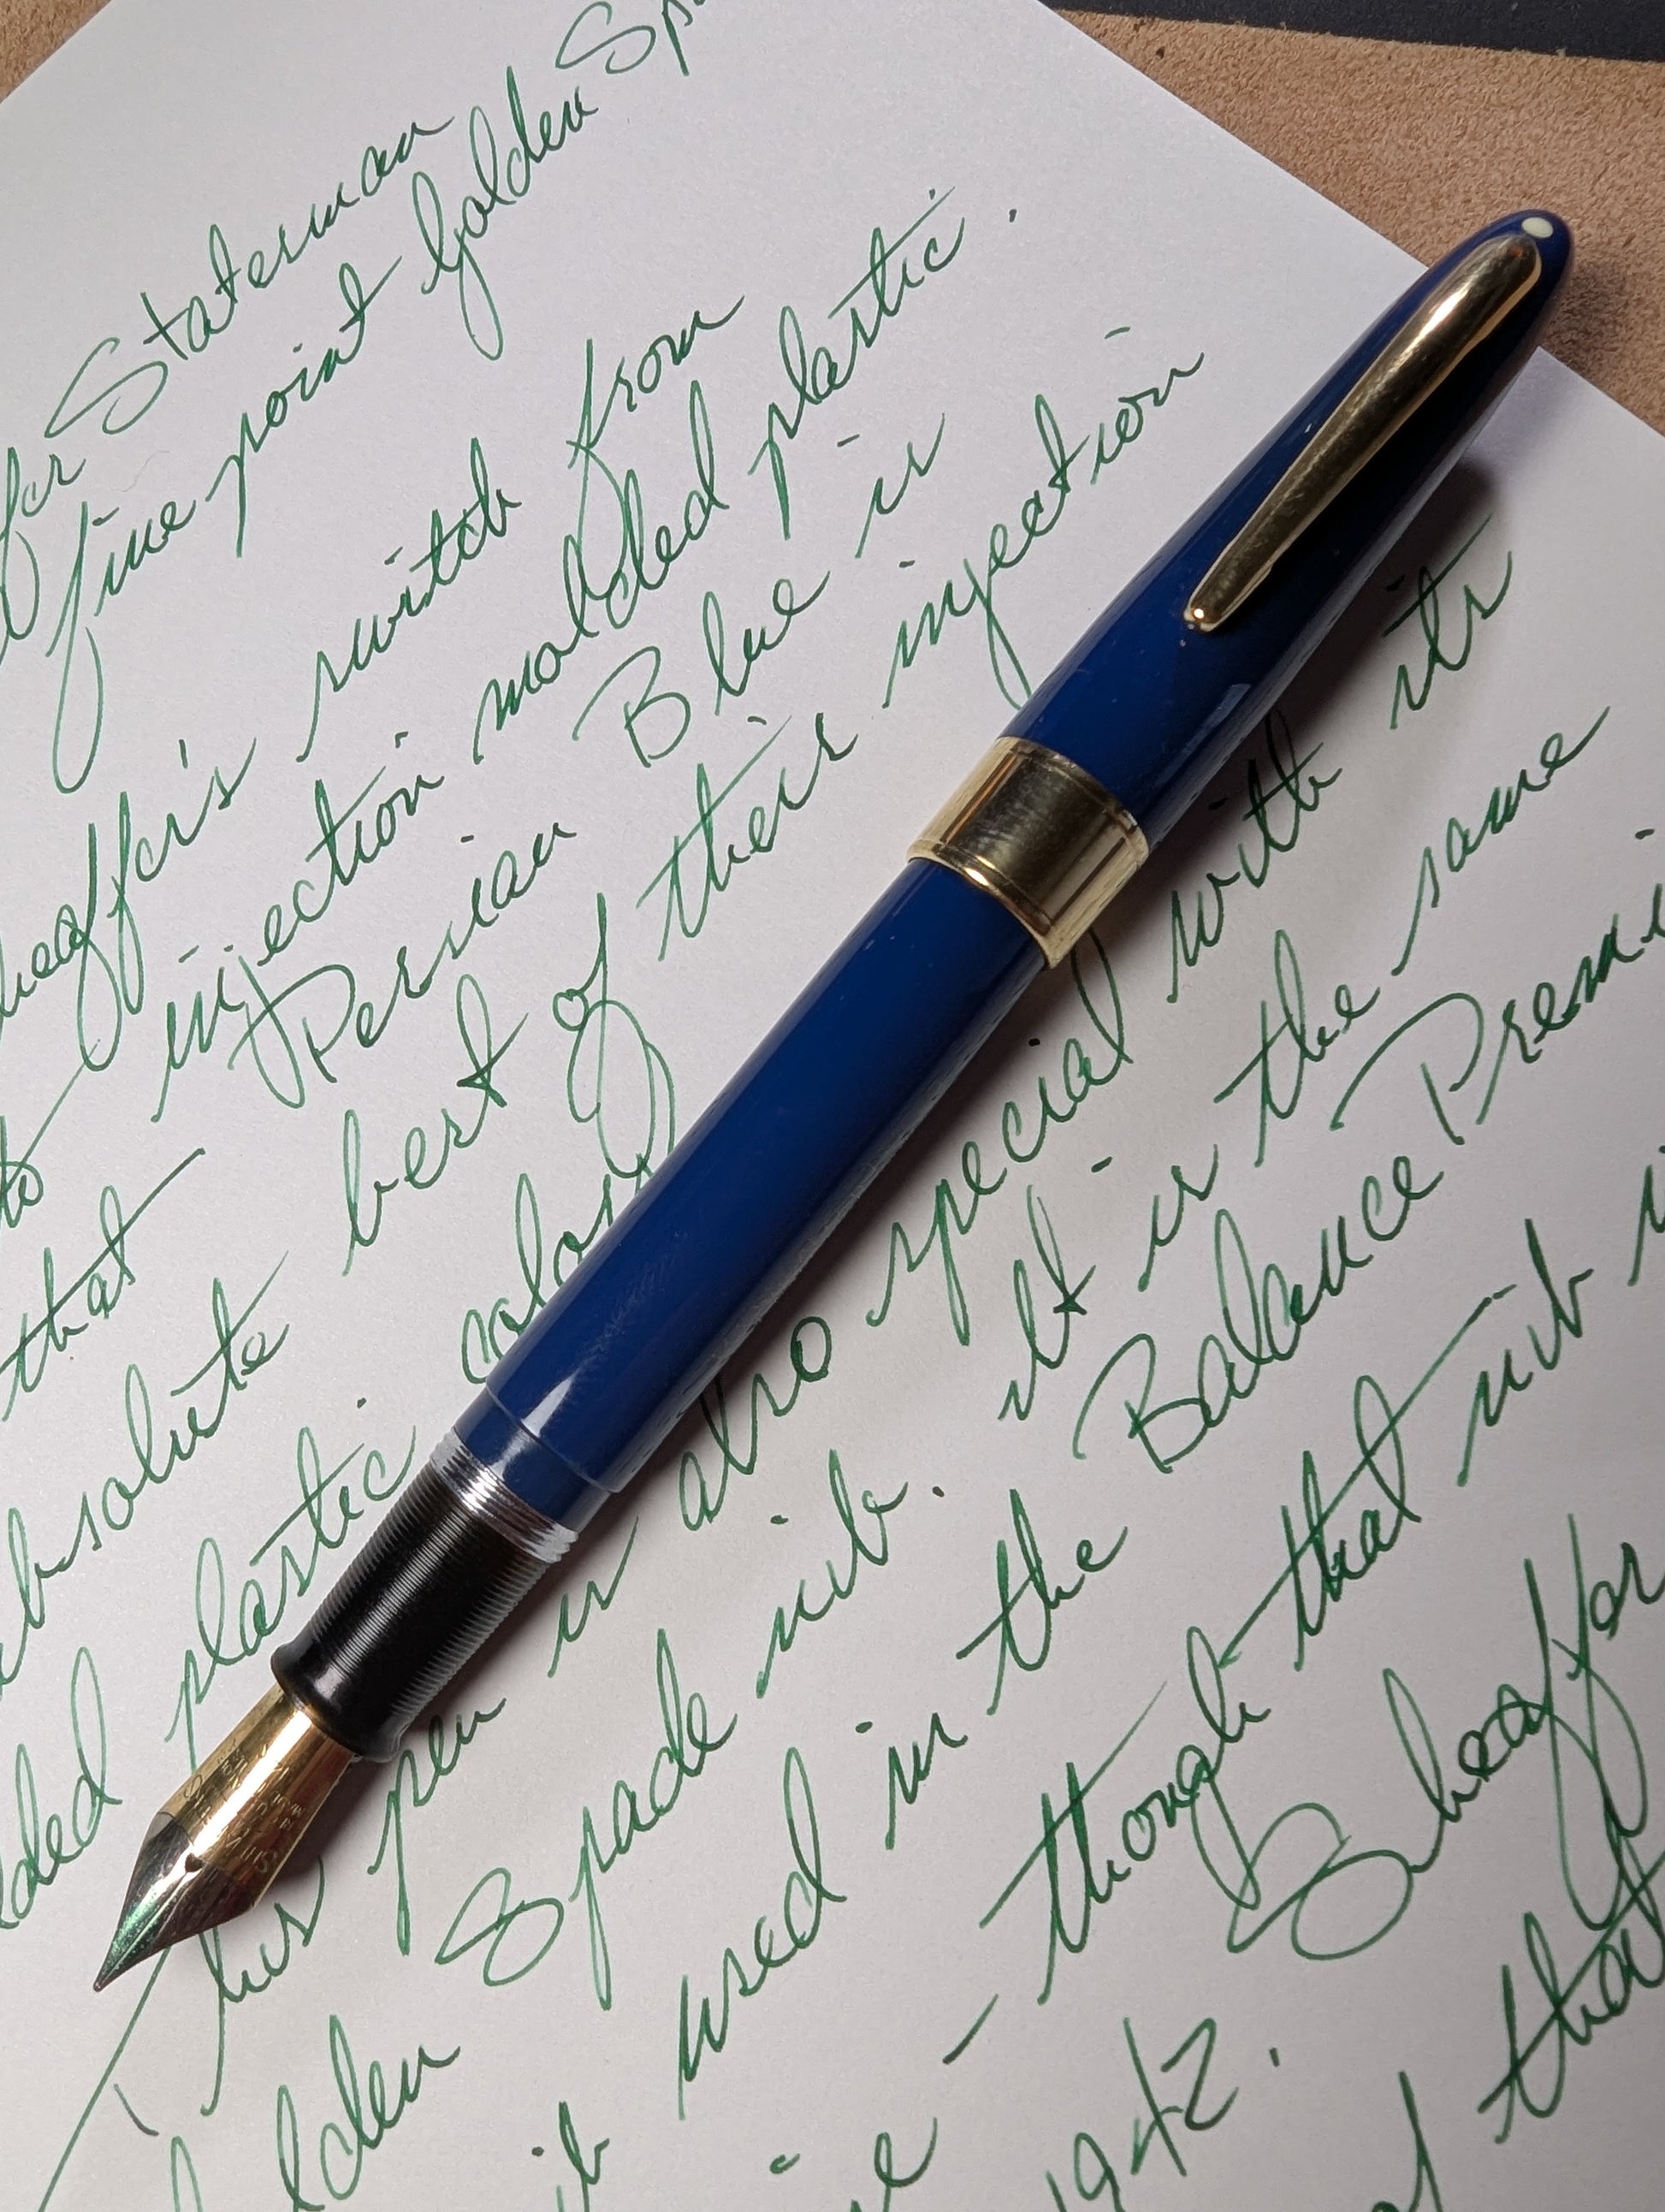 fer Statesman
fine point Golden Sp
heaffer's switch from
to injection molded plastic.
that Persian Blue is
absolute best of their injection
lded plastic color
This pen is also special with its
lden Spade nib. It is the same
ib used in the Balance Premi
e - though that nib i
1942. Sheaffer
that